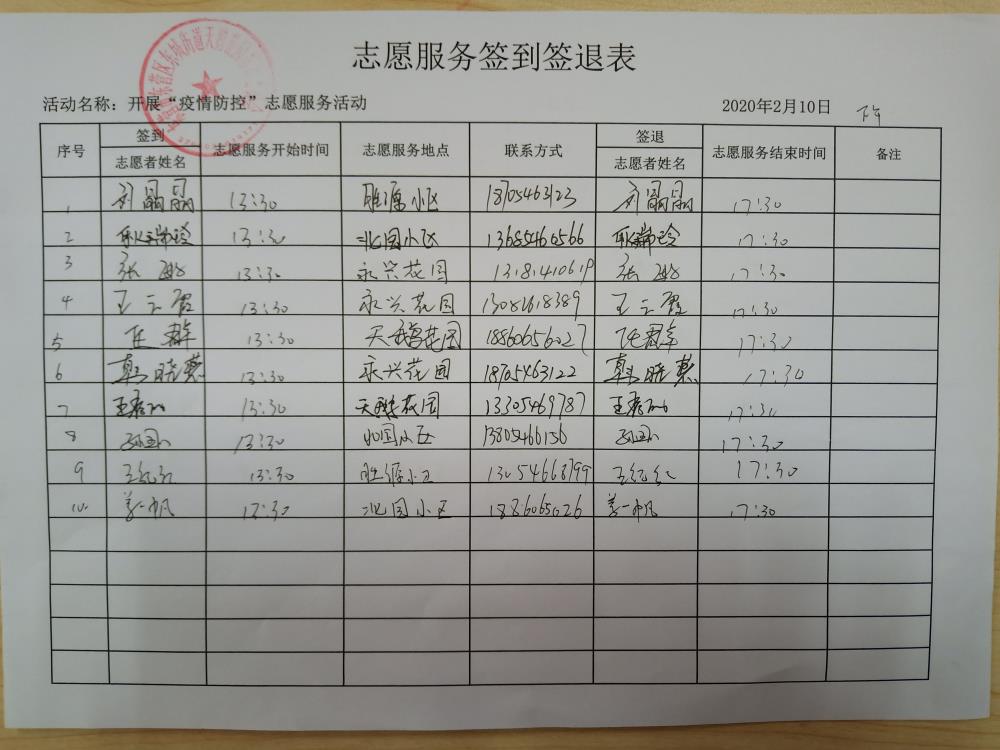 志愿服务签到签退表
活动名称：开展“疫情防控”志愿服务活动 2020年2月10日 下午
序号 签到 志愿服务开始时间 志愿服务地点 联系方式 签退 志愿服务结束时间 备注
志愿者姓名 志愿者姓名
1 13:30 胜源小区 18705463123 17:30
2 13:30 北国小区 13685460566 17:30
3 张 13:30 永兴花园 13181410619 张 17:30
4 王云霞 13:30 永兴花园 13081618389 王云霞 17:30
5 13:30 天鹅花园 18860656027 17:30
6 韩晓慧 13:30 永兴花园 18705463122 韩晓慧 17:30
7 13:30 花园 13305469787 17:30
8 13:30 北国小区 13805466156 17:30
9 13:30 胜源小区 13054668799 17:30
10 姜一帆 13:30 北国小区 1886065026 姜一帆 17:30